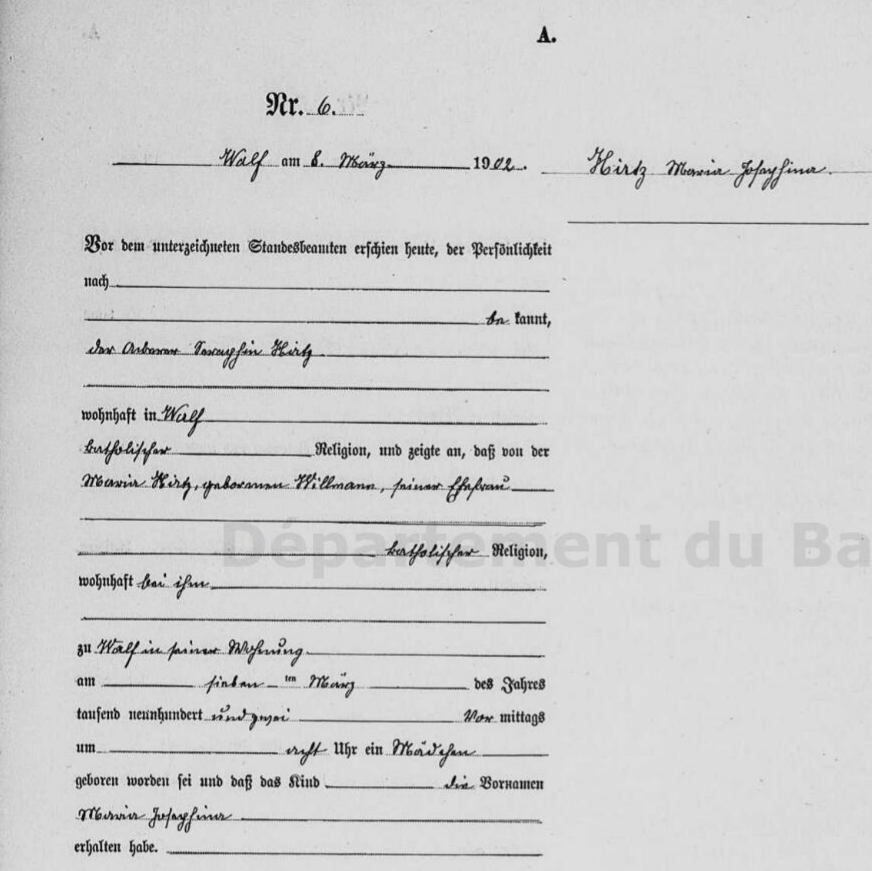 A.
Nr. 6.
Walf am 8. März 1902.
Hirtz Maria Josephina.
Vor dem unterzeichneten Standesbeamten erschien heute, der Persönlichkeit
nach
be kannt,
der Ackerer Seraphin Hirtz
wohnhaft in Walf
katholischer Religion, und zeigte an, daß von der
Maria Hirtz, geborenen Willmann, seiner Ehefrau
katholischer Religion,
wohnhaft bei ihm
zu Walf in seiner Wohnung
am sieben ten März des Jahres
tausend neunhundert und zwei Vor mittags
um acht Uhr ein Mädchen
geboren worden sei und daß das Kind die Vornamen
Maria Josephina
erhalten habe.
Département du Ba